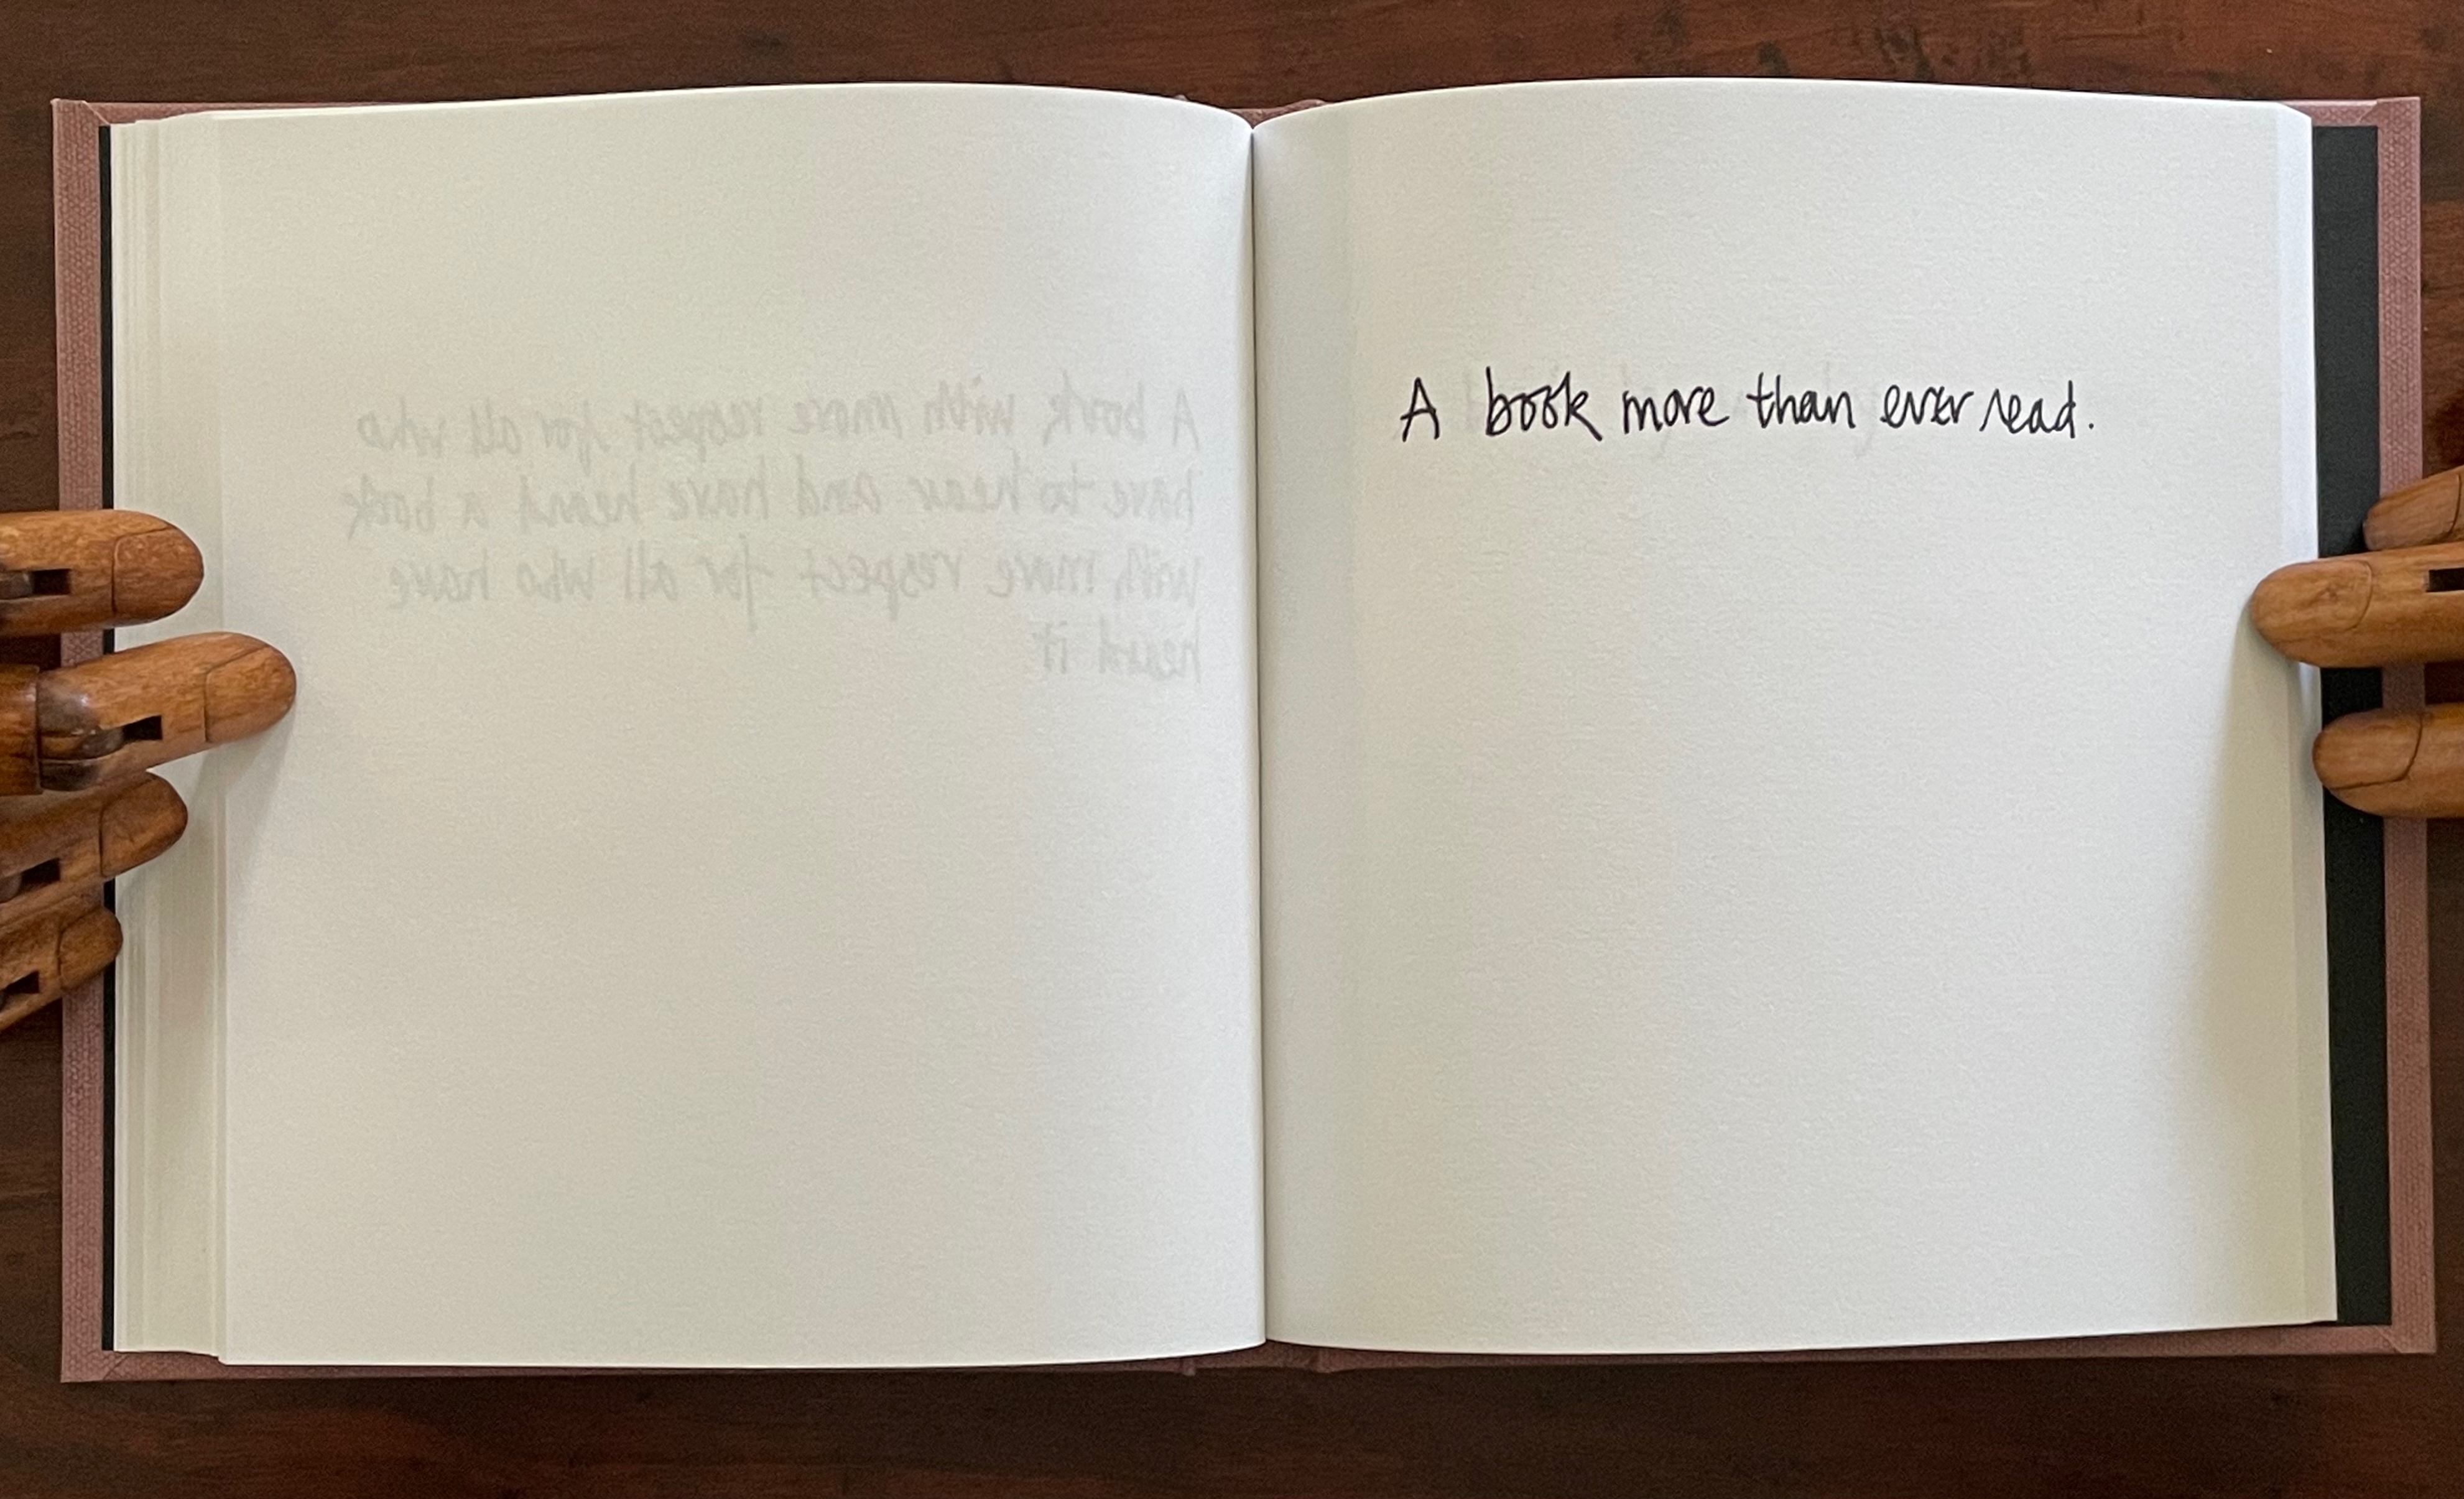 A book with more respect for all who
have to hear and have heard a book
with more respect for all who have
heard it
A book more than ever read.